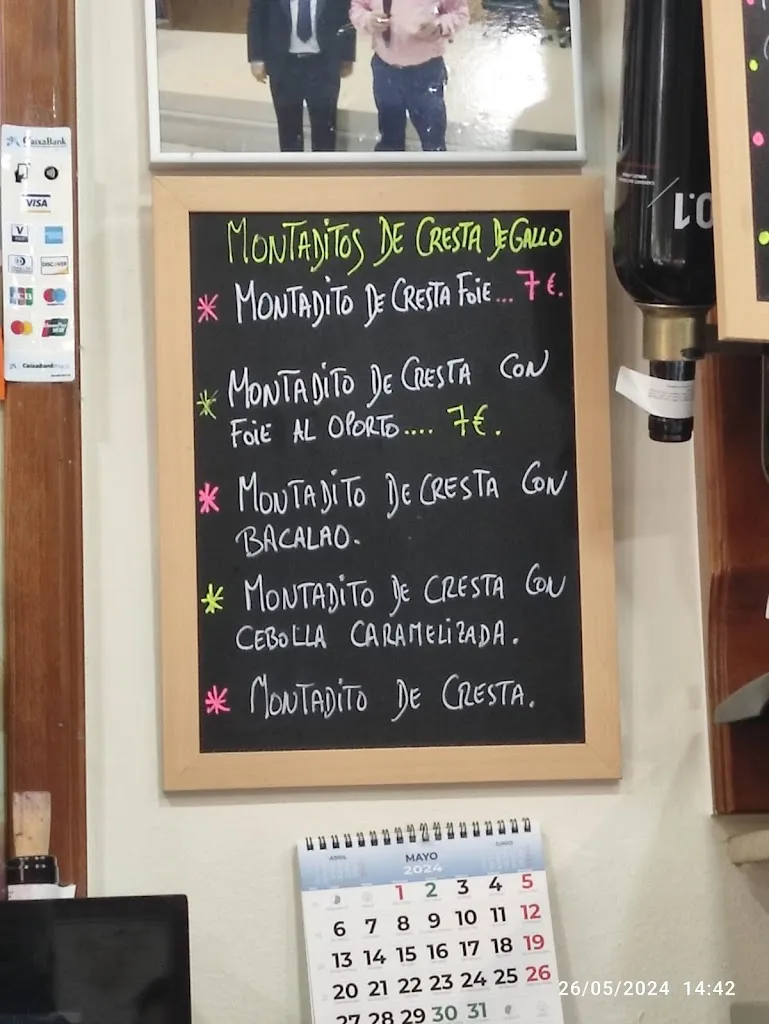 CaixaBank
VISA
V
DISCOVER
CaixaBank
0.1
MONTADITOS DE CRESTA DE GALLO
* MONTADITO DE CRESTA FOIE... 7€.
* MONTADITO DE CRESTA CON
FOIE AL OPORTO.... 7€.
* MONTADITO DE CRESTA CON
BACALAO.
* MONTADITO DE CRESTA CON
CEBOLLA CARAMELIZADA.
* MONTADITO DE CRESTA.
ABRIL MAYO JUNIO
2024
1 2 3 4 5
6 7 8 9 10 11 12
13 14 15 16 17 18 19
20 21 22 23 24 25 26
27 28 29 30 31
26/05/2024 14:42